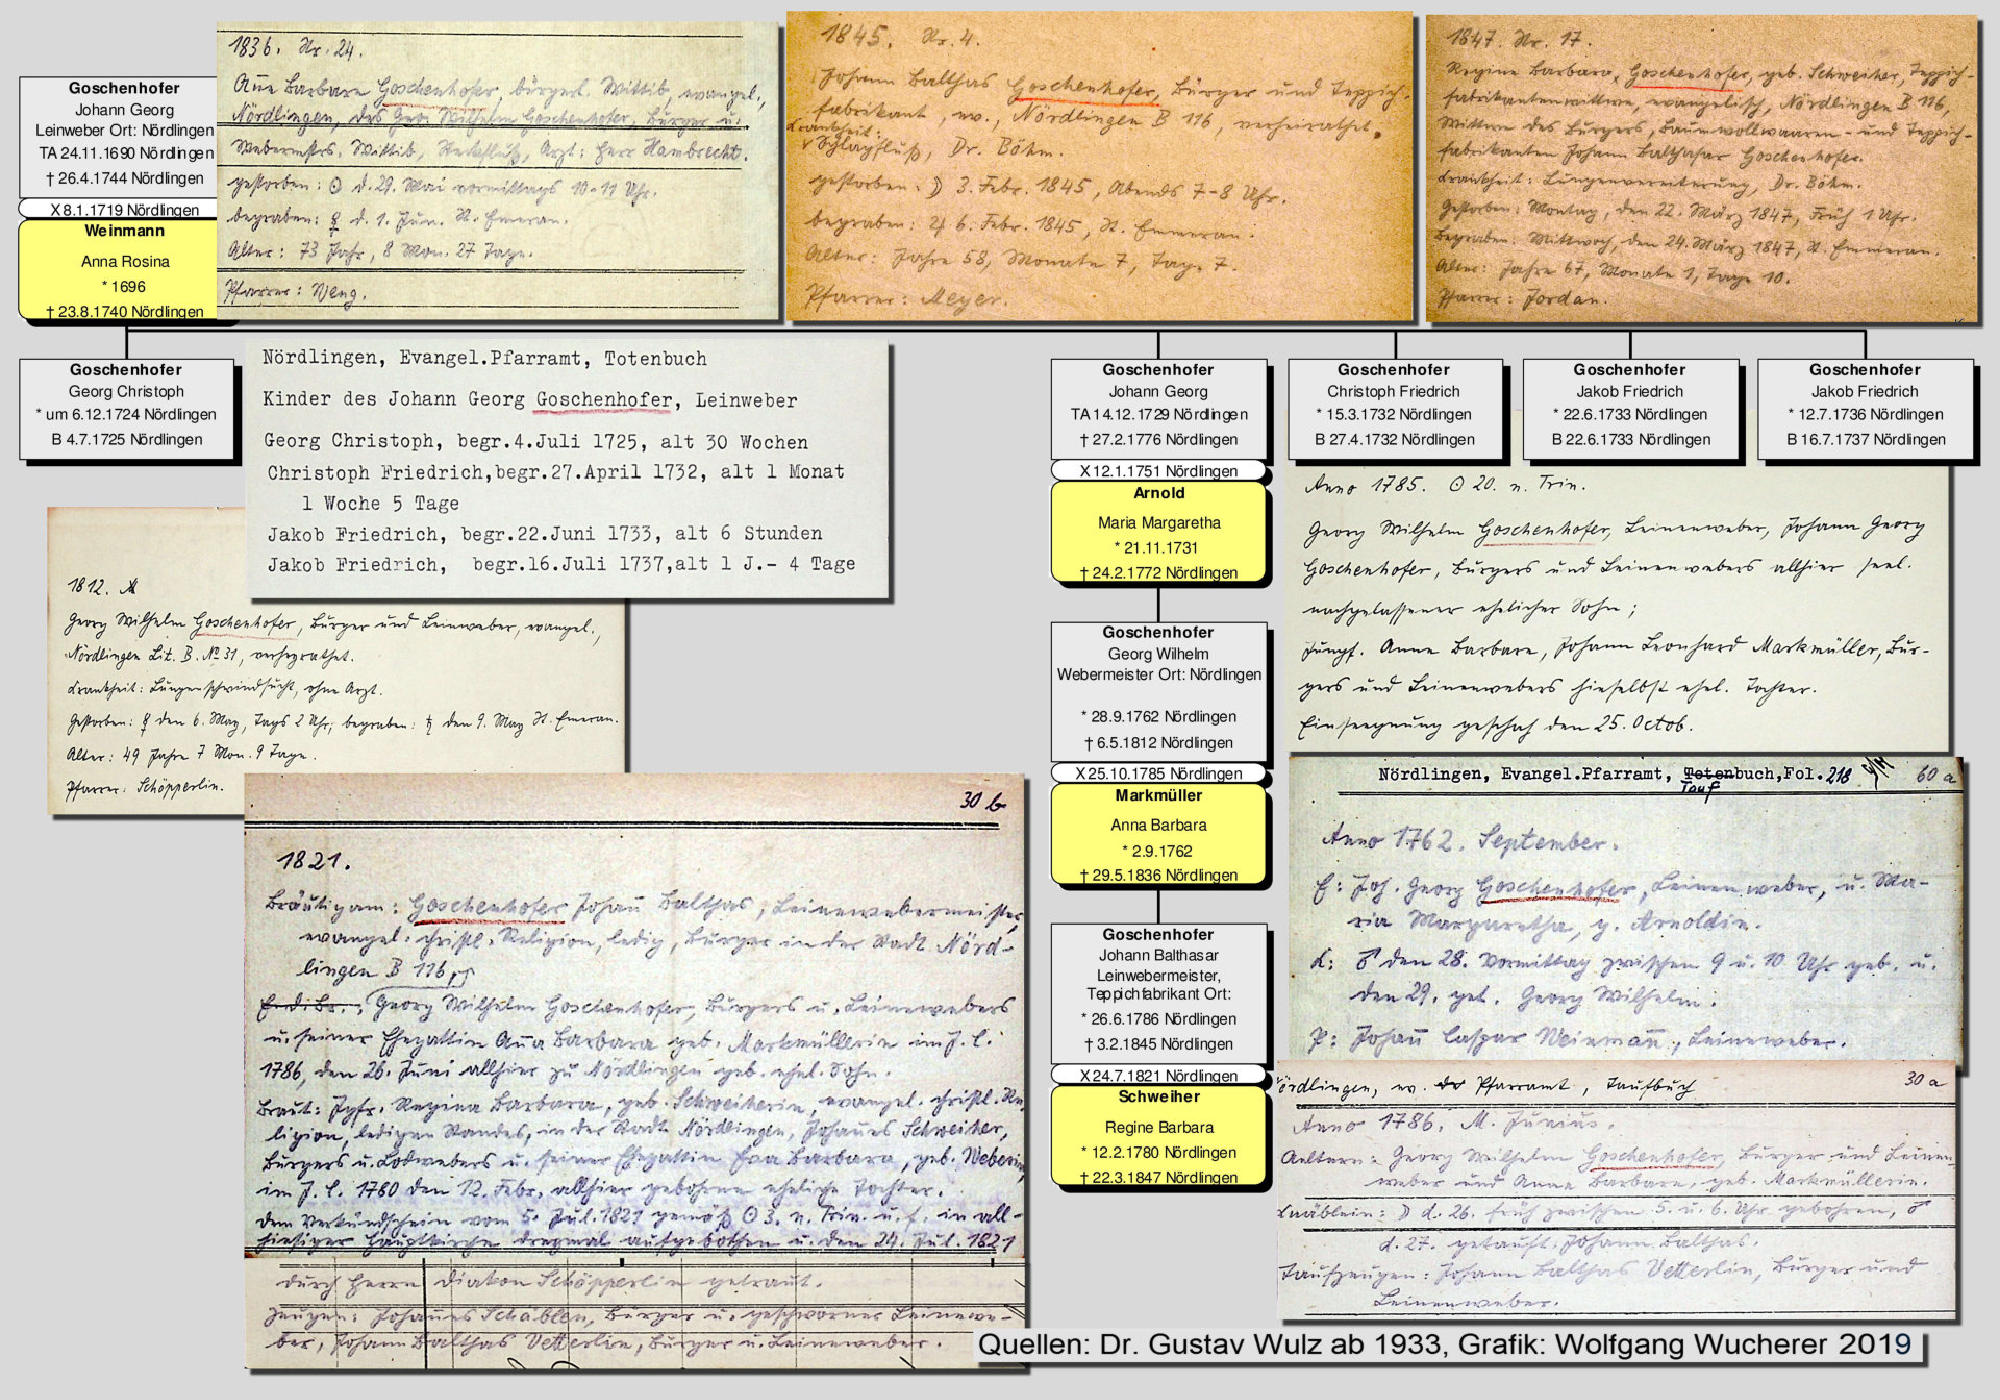 Goschenhofer
Johann Georg
Leinweber Ort: Nördlingen
TA 24.11.1690 Nördlingen
† 26.4.1744 Nördlingen
X 8.1.1719 Nördlingen
Weinmann
Anna Rosina
* 1696
† 23.8.1740 Nördlingen
1836. Nr. 24.
Anna Barbara Goschenhofer, bürgerl. Wittib, evangel.,
Nördlingen, des Georg Wilhelm Goschenhofer, Bürger u.
Webermstrs. Wittib, Steckfluß, Arzt: Herr Hambrecht.
gestorben: ☉ d. 29. Mai vormittags 10-11 Uhr.
begraben: ☿ d. 1. Jun. St. Emeran.
Alter: 73 Jahr, 8 Mon. 27 Tage.
Pfarrer: Weng.
1845. Nr. 4.
Johann Balthas Goschenhofer, Bürger und Teppich-
fabrikant, ev., Nördlingen B 116, verheirathet.
Krankheit:
Schlagfluß, Dr. Böhm.
gestorben: ☽ 3. Febr. 1845, Abends 7-8 Uhr.
begraben: ♃ 6. Febr. 1845, St. Emmeran.
Alter: Jahre 58, Monate 7, Tage 7.
Pfarrer: Meyer.
1847. Nr. 17.
Regine Barbara, Goschenhofer, geb. Schweiher, Teppich-
fabrikantenwittwe, evangelisch, Nördlingen B 116,
Wittwe des Bürgers, Baumwollwaaren- und Teppich-
fabrikanten Johann Balthasar Goschenhofer.
Krankheit: Lungenvereiterung, Dr. Böhm.
Gestorben: Montag, den 22. März 1847, Früh 1 Uhr.
Begraben: Mittwoch, den 24. März 1847, St. Emmeran.
Alter: Jahre 67, Monate 1, Tage 10.
Pfarrer: Jordan.
Goschenhofer
Georg Christoph
* um 6.12.1724 Nördlingen
B 4.7.1725 Nördlingen
Nördlingen, Evangel.Pfarramt, Totenbuch
Kinder des Johann Georg Goschenhofer, Leinweber
Georg Christoph, begr.4.Juli 1725, alt 30 Wochen
Christoph Friedrich,begr.27.April 1732, alt 1 Monat
1 Woche 5 Tage
Jakob Friedrich, begr.22.Juni 1733, alt 6 Stunden
Jakob Friedrich, begr.16.Juli 1737,alt 1 J.- 4 Tage
Goschenhofer
Johann Georg
TA 14.12.1729 Nördlingen
† 27.2.1776 Nördlingen
X 12.1.1751 Nördlingen
Arnold
Maria Margaretha
* 21.11.1731
† 24.2.1772 Nördlingen
Goschenhofer
Christoph Friedrich
* 15.3.1732 Nördlingen
B 27.4.1732 Nördlingen
Goschenhofer
Jakob Friedrich
* 22.6.1733 Nördlingen
B 22.6.1733 Nördlingen
Goschenhofer
Jakob Friedrich
* 12.7.1736 Nördlingen
B 16.7.1737 Nördlingen
Anno 1785. ☉ 20. n. Trin.
Georg Wilhelm Goschenhofer, Leinenweber, Johann Georg
Goschenhofer, Bürgers und Leinenwebers allhier seel.
nachgelassener ehelicher Sohn;
Jungf. Anna Barbara, Johann Leonhard Markmüller, Bür-
gers und Leinenwebers hieselbst ehel. Tochter.
Einseegnung geschah den 25. Octob.
1812.
Georg Wilhelm Goschenhofer, Bürger und Leinweber, evangel.,
Nördlingen Lit. B. No 31, verheyrathet.
Krankheit: Lungenschwindsucht, ohne Arzt.
Gestorben: ☿ den 6. May, Tags 2 Uhr; begraben: ♄ den 9. May St. Emeran.
Alter: 49 Jahre 7 Mon. 9 Tage.
Pfarrer: Schöpperlin.
Goschenhofer
Georg Wilhelm
Webermeister Ort: Nördlingen
* 28.9.1762 Nördlingen
† 6.5.1812 Nördlingen
X 25.10.1785 Nördlingen
Markmüller
Anna Barbara
* 2.9.1762
† 29.5.1836 Nördlingen
Goschenhofer
Johann Balthasar
Leinwebermeister,
Teppichfabrikant Ort:
* 26.6.1786 Nördlingen
† 3.2.1845 Nördlingen
X 24.7.1821 Nördlingen
Schweiher
Regine Barbara
* 12.2.1780 Nördlingen
† 22.3.1847 Nördlingen
30 b
1821.
Bräutigam: Goschenhofer Johann Balthas, Leinewebermeister,
evangel. christl. Religion, ledig, Bürger in der Stadt Nörd-
lingen B 116,
E. d. Br.: Georg Wilhelm Goschenhofer, Bürgers u. Leinewebers
u. seiner Ehegattin Anna Barbara geb. Markmüllerin im J. C.
1786, den 26. Juni allhier zu Nördlingen geb. ehel. Sohn.
Braut: Jgfr. Regina Barbara, geb. Schweiherin, evangel. christl. Re-
ligion, ledigen Standes, in der Stadt Nördlingen, Johannes Schweiher,
Bürgers u. Lodwebers u. seiner Ehegattin Eva Barbara, geb. Weberin,
im J. C. 1780 den 12. Febr. allhier gebohrne eheliche Tochter.
Dem Verkündschein vom 5. Jul. 1821 gemäß ☉ 3. n. Trin. u. f. in all-
hiesiger Hauptkirche dreymal aufgebothen u. den 24. Jul. 1821
durch Herrn Diakon Schöpperlin getraut.
Zeugen: Johannes Schäblen, Bürger u. geschworner Leinewe-
ber, Johann Balthas Vetterlin, Bürger u. Leineweber.
Nördlingen, Evangel.Pfarramt, Totenbuch,Fol. 218
Tauf
60 a
Anno 1762. September.
E: Joh. Georg Goschenhofer, Leinenweber, u. Ma-
ria Margaretha, g. Arnoldin.
K: ♂ den 28. Vormittag zwischen 9 u. 10 Uhr geb. u.
den 29. get. Georg Wilhelm.
P: Johann Caspar Weinmann, Leineweber.
ördlingen, ev. Pfarramt, Taufbuch
30 a
Anno 1786. M. Junius.
Aeltern: Georg Wilhelm Goschenhofer, Bürger und Leinen-
weber und Anna Barbara, geb. Markmüllerin.
Knäblein: ☽ d. 26. früh zwischen 5. u. 6. Uhr gebohren, ♂
d. 27. getauft. Johann Balthas.
Taufzeugen: Johann Balthas Vetterlin, Bürger und
Leinenweber.
Quellen: Dr. Gustav Wulz ab 1933, Grafik: Wolfgang Wucherer 2019